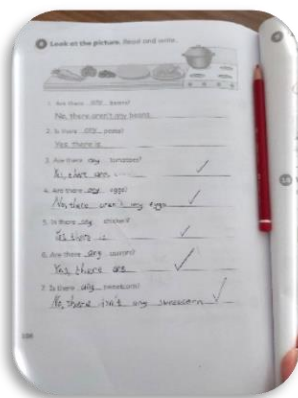 4 Look at the picture. Read and write.
1. Are there any beans?
No, there aren't any beans.
2. Is there any pasta?
Yes, there is.
3. Are there any tomatoes?
Yes, there are.
4. Are there any eggs?
No, there aren't any eggs
5. Is there any chicken?
Yes there is
6. Are there any carrots?
Yes, there are
7. Is there any sweetcorn?
No, there isn't any sweetcorn